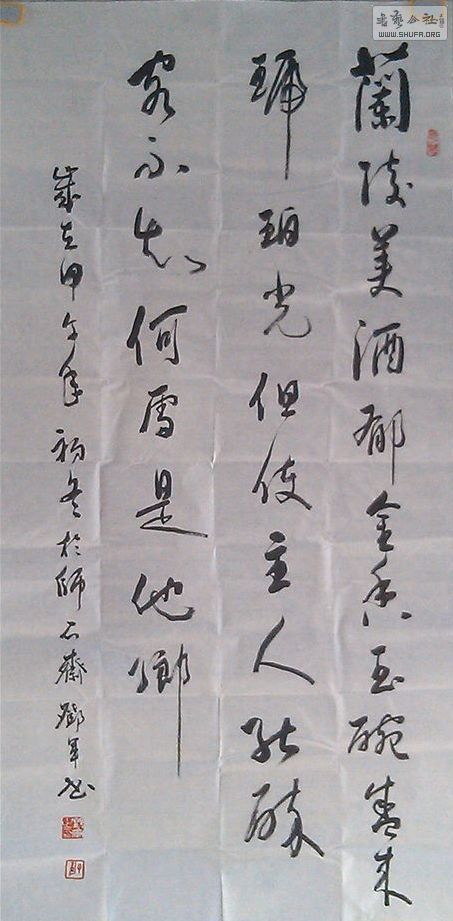 蘭陵美酒郁金香玉碗盛来
琥珀光但使主人能醉
客不知何處是他鄉
歲在甲午年初冬於師石齋鄧軍书
書藝公社
WWW.SHUFA.ORG